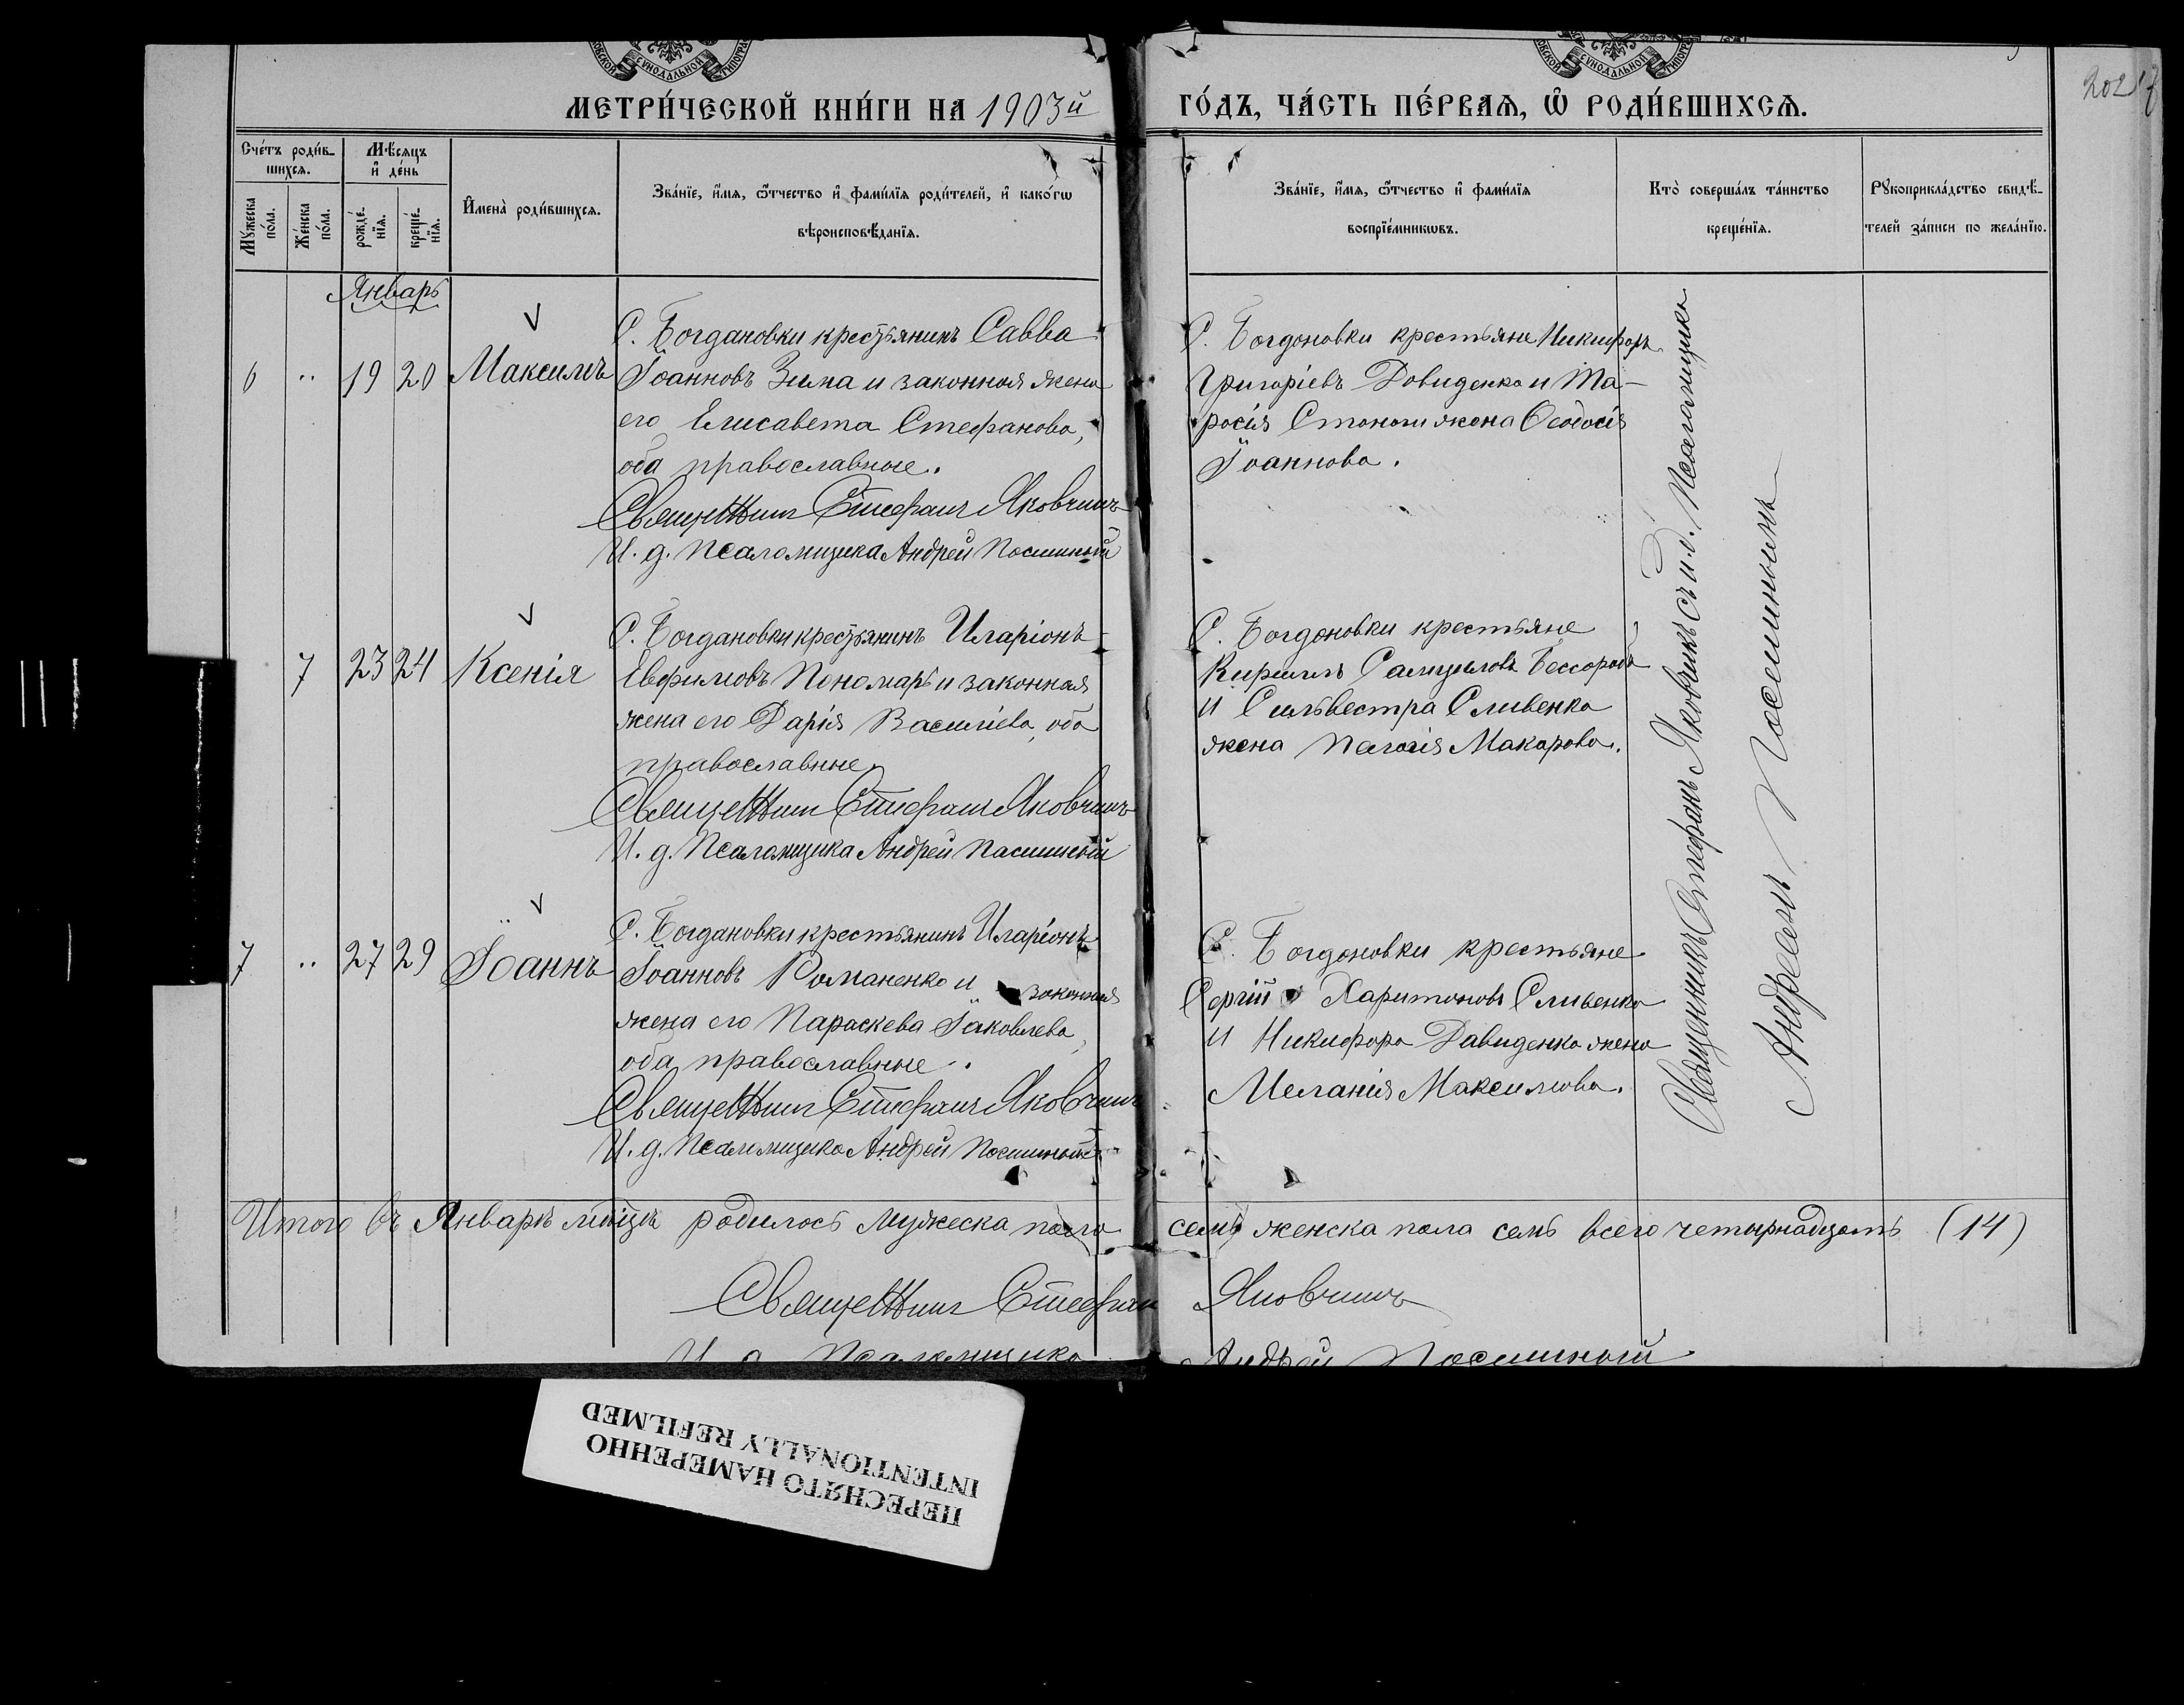 МЕТРИ́ЧЕСКОЙ КНИ́ГИ НА 1903й
ГО́ДЪ, ЧА́СТЬ ПЕ́РВАѦ, Ѡ РОДИ́ВШИХСѦ.
Сче́тъ роди́в-
шихсѧ.
Мꙋ́жеска
по́ла.
Же́нска
по́ла.
Мѣ́сѧцъ
и҆ де́нь
рожде́-
нїѧ.
креще́-
нїѧ.
И҆мена̀ роди́вшихсѧ.
Зва́нїе, и҆́мѧ, ѻ҆́тчество и҆ фами́лїѧ роди́телей, и҆ како́гѡ
вѣроисповѣ́данїѧ.
Зва́нїе, и҆́мѧ, ѻ҆́тчество и҆ фами́лїѧ
воспрїе́мникѡвъ.
Кто̀ соверша́лъ та́инство
креще́нїѧ.
Рꙋкоприкла́дство свидѣ́-
телей за́писи по жела́нїю.
Январь
6 " 19 20 Максимъ
С. Богдановки крестьянинъ Савва
Іоанновъ Зима и законная жена
его Елисавета Стефанова,
оба православные.
Священникъ Стефанъ Яковчикъ
И. д. Псаломщика Андрей Пасишный
С. Богдановки крестьяне Никифоръ
Григоріевъ Давиденко и Та-
расія жена Ѳеодосія
Іоаннова.
7 23 24 Ксенія
С. Богдановки крестьянинъ Иларіонъ
Евфимовъ Пономарь и законная
жена его Дарія Василіева, оба
православные.
Священникъ Стефанъ Яковчикъ
И. д. Псаломщика Андрей Пасишный
С. Богдановки крестьяне
Кириллъ
и Сильвестра Сливенка
жена Пелагія Макарова.
7 " 27 29 Іоаннъ
С. Богдановки крестьянинъ Иларіонъ
Іоанновъ Романенко и законная
жена его Параскева Іаковлева,
оба православные.
Священникъ Стефанъ Яковчикъ
И. д. Псаломщика Андрей Пасишный
С. Богдановки крестьяне
Сергій Харитоновъ Сливенко
и Никифора Давиденка жена
Меланія Максимова.
Священникъ Стефанъ Яковчикъ съ и. д. Псаломщика
Андреемъ Пасишнымъ
Итого въ Январѣ мѣсяцѣ родилось мужеска пола семь женска пола семь всего четырнадцать (14)
Священникъ Стефанъ Яковчикъ
И. д. Псаломщика Андрей Пасишный
ПЕРЕСНЯТО НАМЕРЕННО
INTENTIONALLY REFILMED